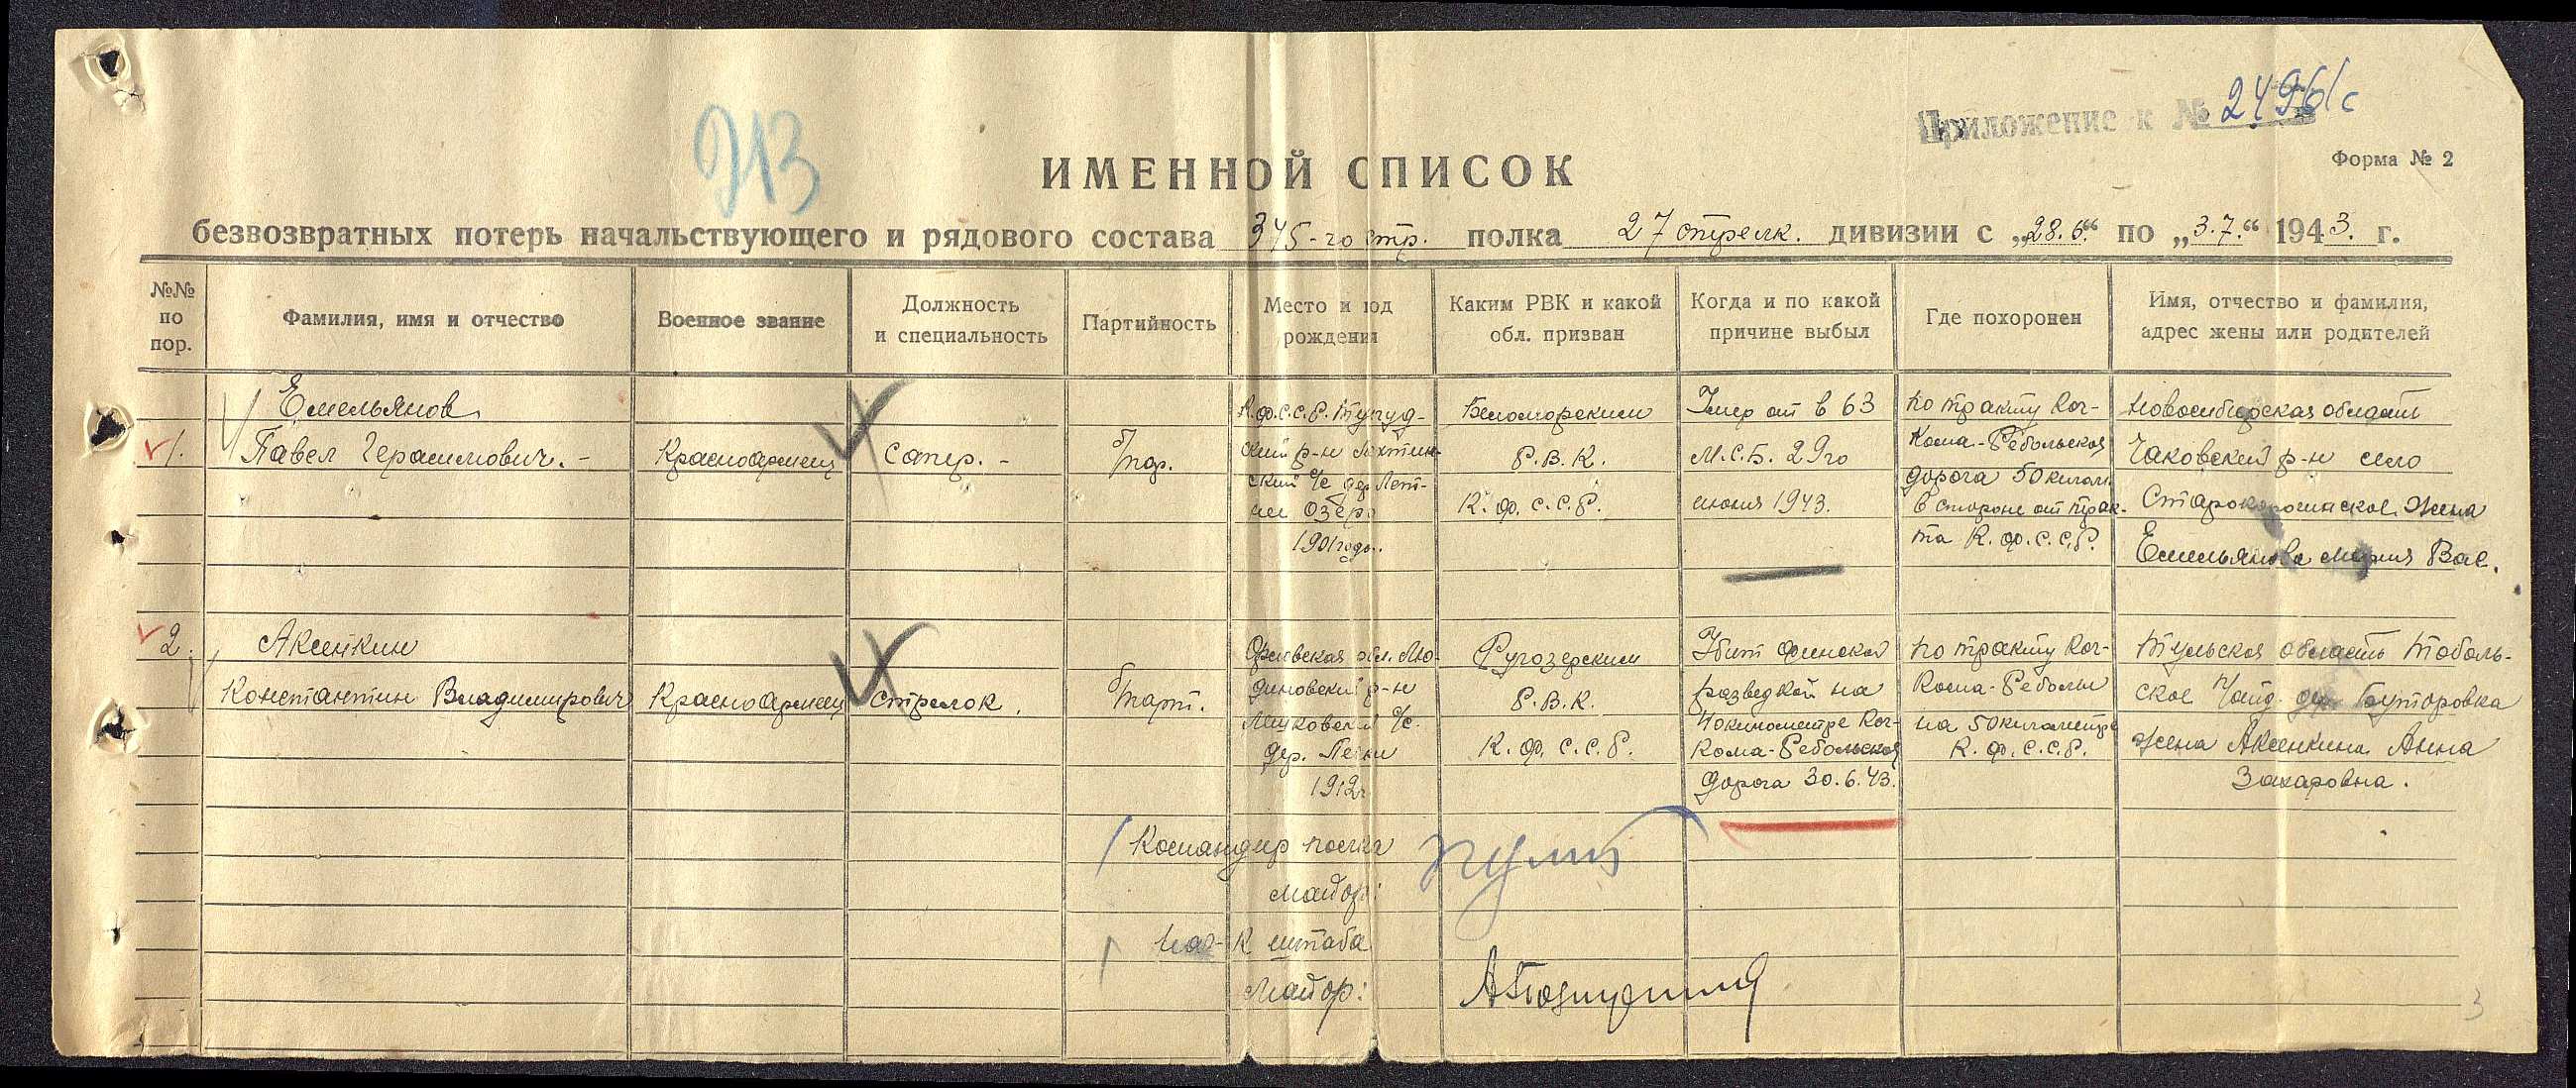 213
Приложение к № 2496/с
Форма № 2
ИМЕННОЙ СПИСОК
безвозвратных потерь начальствующего и рядового состава 345-го стр. полка 27 стрелк. дивизии с „28.6.“ по „3.7.“ 1943. г.
№№ по пор.
Фамилия, имя и отчество
Военное звание
Должность и специальность
Партийность
Место и год рождения
Каким РВК и какой обл. призван
Когда и по какой причине выбыл
Где похоронен
Имя, отчество и фамилия, адрес жены или родителей
1.
Емельянов
Павел Герасимович. -
Красноармеец
Сапер. -
К.ф.С.С.Р. Тунгуд-
ский р-н
ский с/с дер Лет-
нее Озеро
1901 года.
Беломорским
Р.В.К.
К.ф.С.С.Р.
Умер от в 63
М.С.Б. 29го
июня 1943.
По тракту Коч-
Кома-Ребольская
дорога 50 килом.
в стороне от трак-
та К.ф.С.С.Р.
Новосибирская область
Чановский р-н село
Жена
Емельянова Мария Вас.
2.
Аксенкин
Константин Владимирович
Красноармеец
Стрелок.
Орловская обл.
р-н
с/с.
дер.
1912г
Ругозерским
Р.В.К.
К.ф.С.С.Р.
Убит финской
разведкой на
40 километре Коч-
Кома-Ребольская
дорога 30.6.43.
По тракту Коч-
Кома-Реболы
на 50 километре
К.ф.С.С.Р.
Тульская область Тоболь-
ское дер. Буторовка
Жена Аксенкина Анна
Захаровна.
Командир полка
майор:
Нач-к штаба
Майор:
3